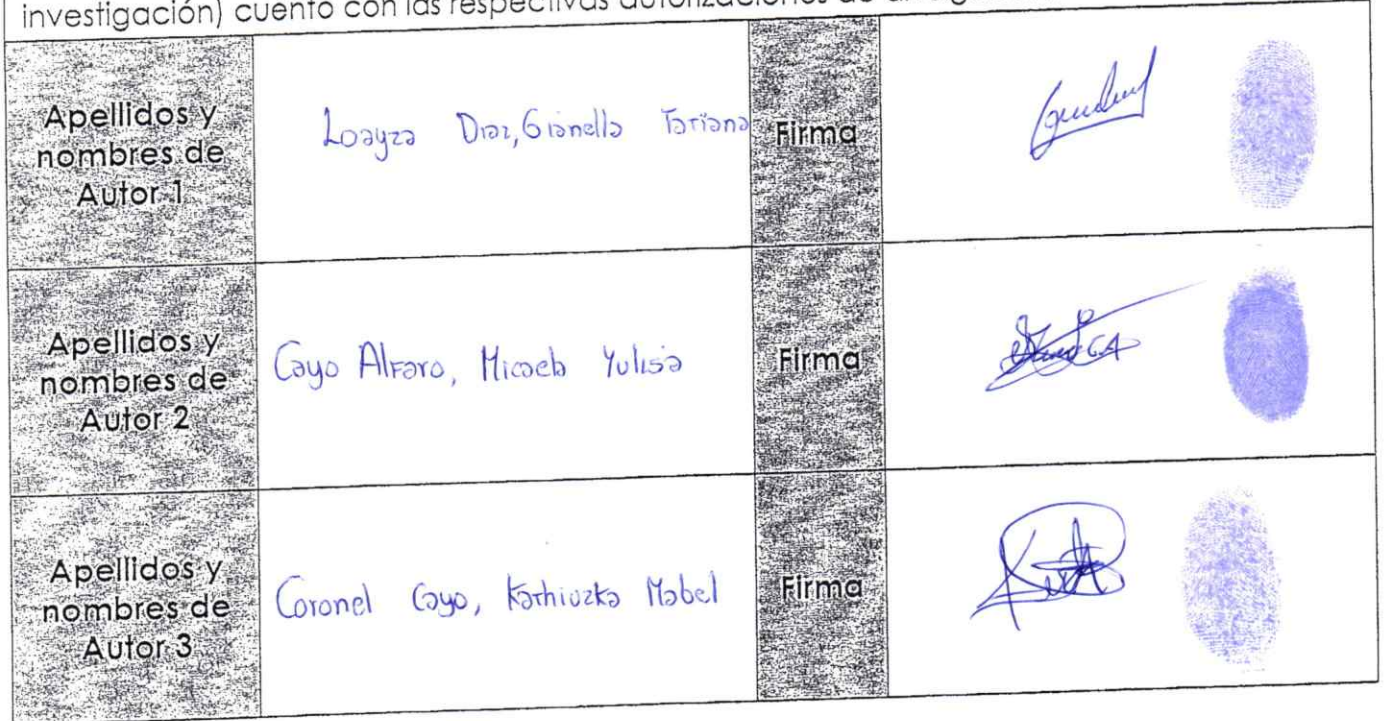 investigación) cuento con las respectivas autorizaciones de
Apellidos y
nombres de
Autor 1
Loayza Diaz, Gianella Tatiana
Firma
Apellidos y
nombres de
Autor 2
Cayo Alfaro, Micaela Yulisa
Firma
Apellidos y
nombres de
Autor 3
Coronel Cayo, Kathiuzka Mabel
Firma